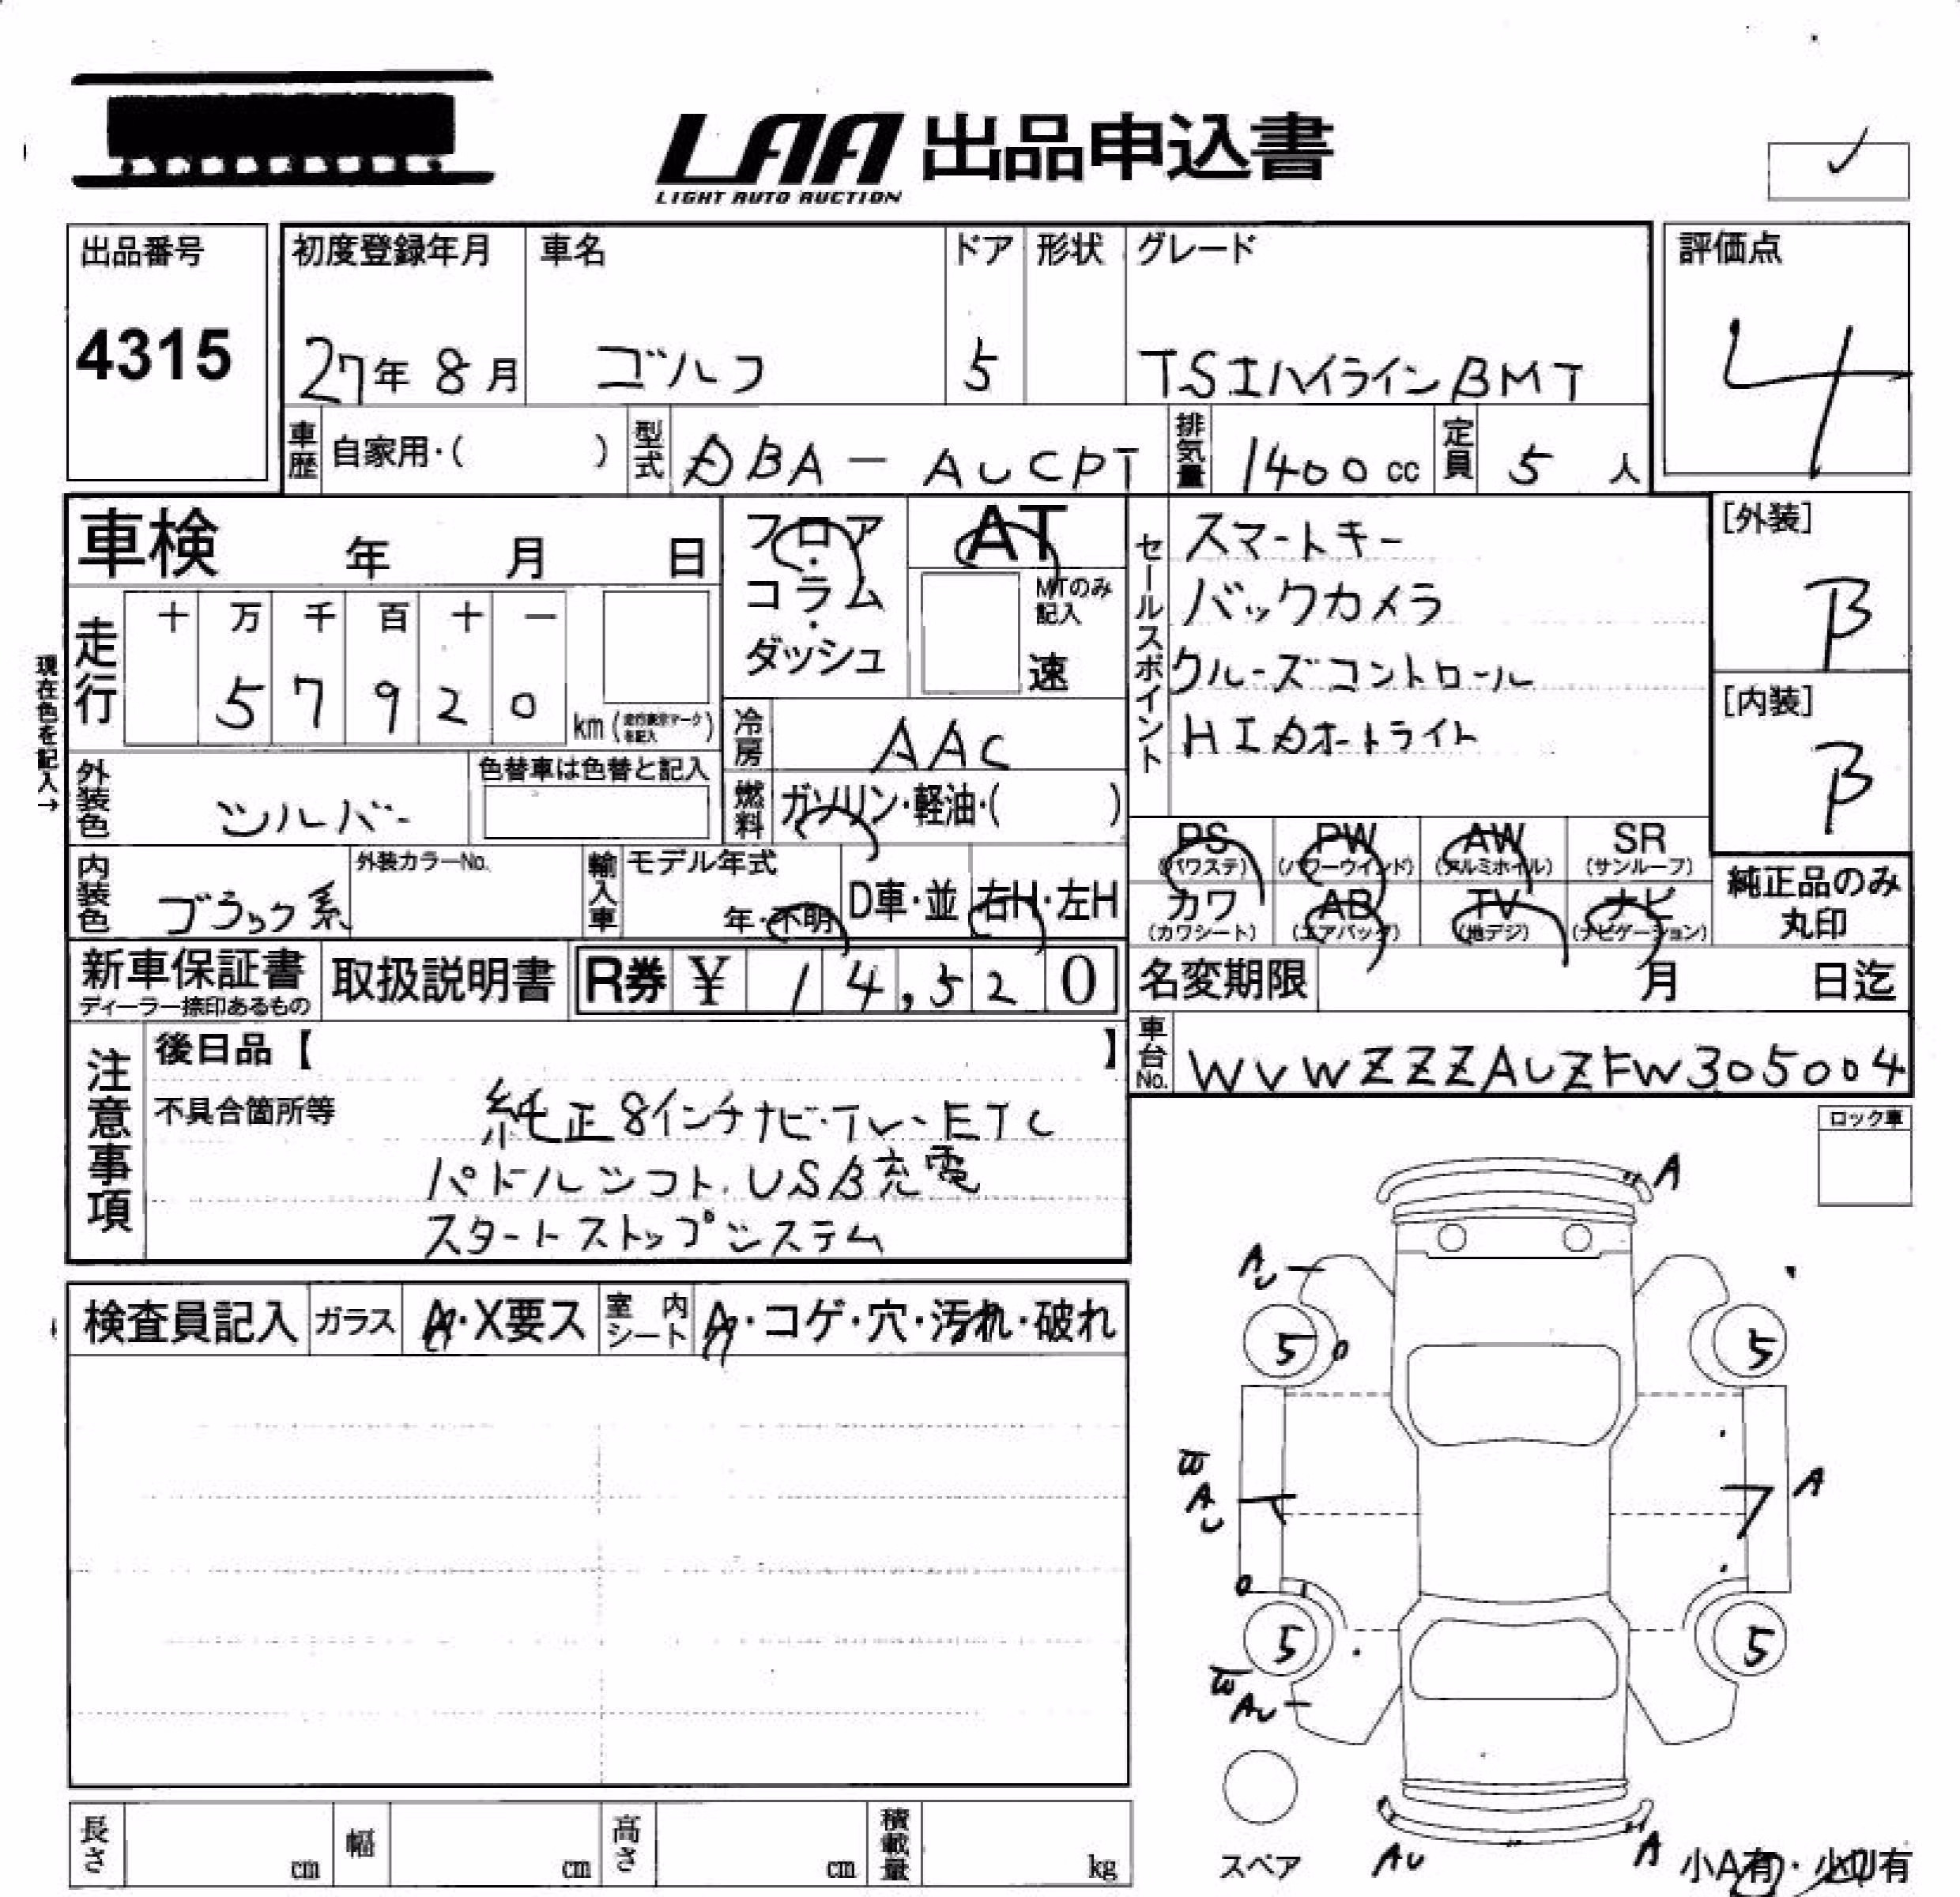 LAA 出品申込書
LIGHT AUTO AUCTION
出品番号
4315
初度登録年月
27年 8月
車名
ゴルフ
ドア
5
形状
グレード
TSIハイラインBMT
評価点
4
車歴
自家用・( )
型式
DBA-AUCPT
排気量
1400 cc
定員
5 人
車検 年 月 日
フロア・コラム・ダッシュ
AT
MTのみ記入
速
セールスポイント
スマートキー
バックカメラ
クルーズコントロール
HIDオートライト
[外装]
B
[内装]
B
現在色を記入→
走行
十 万 千 百 十 一
5 7 9 2 0
km
冷房
AAC
外装色
シルバー
色替車は色替と記入
燃料
ガソリン・軽油・( )
内装色
ブラック系
外装カラーNo.
輸入車
モデル年式
年・不明
D車・並
右H・左H
PS
(パワステ)
PW
(パワーウインド)
AW
(アルミホイル)
SR
(サンルーフ)
カワ
(カワシート)
AB
(エアバッグ)
TV
(地デジ)
ナビ
(ナビゲーション)
純正品のみ
丸印
新車保証書
ディーラー捺印あるもの
取扱説明書
R券 ¥ 14,520
名変期限 月 日迄
車台No.
WVWZZZAUZFW305004
注意事項
後日品【 】
不具合箇所等
純正8インチナビ・TV・ETC
パドルシフト.USB充電
スタートストップシステム
ロック車
検査員記入
ガラス
A・X要ス
室内シート
A・コゲ・穴・汚れ・破れ
A
AU
5
5
W
AU
A
5
5
W
AU
スペア
AU
A
小A有・小U有
長さ cm
幅 cm
高さ cm
積載量 kg